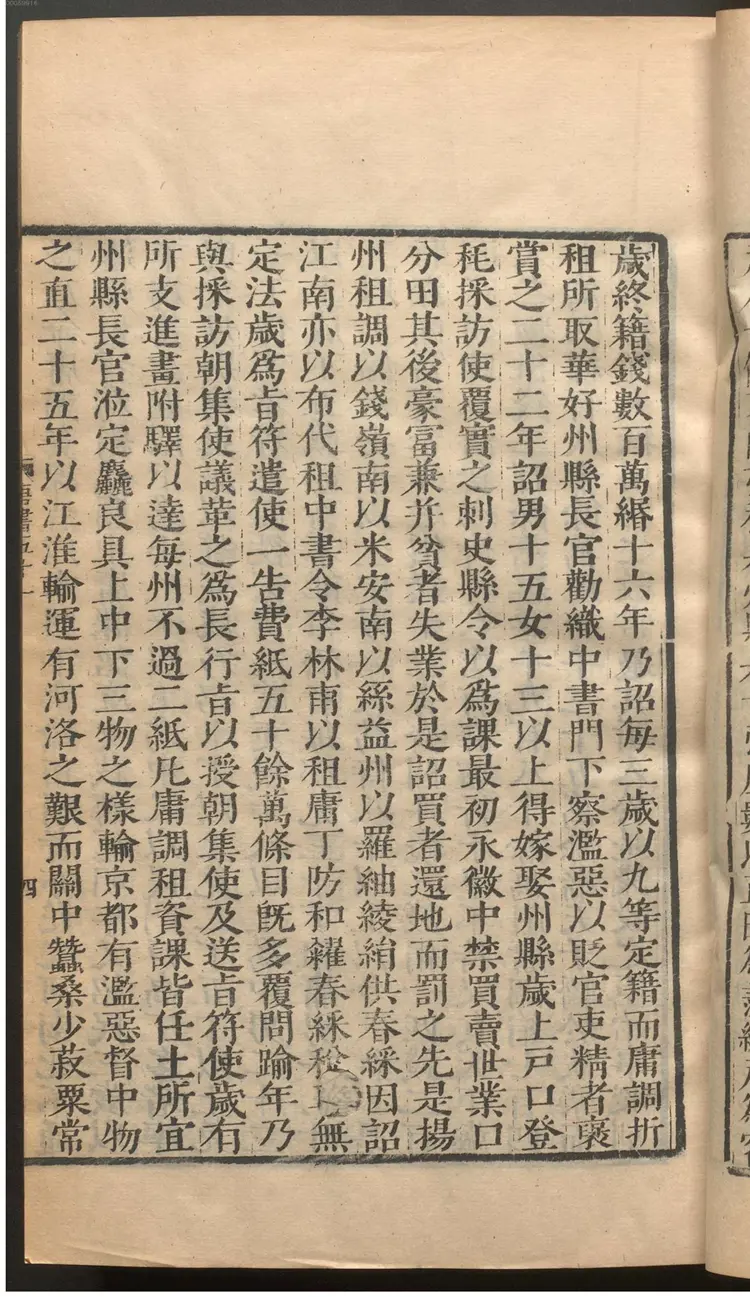 歲終籍錢數百萬緡十六年乃詔每三歲以九等定籍而庸調折
租所取華好州縣長官勸織中書門下察濫惡以貶官吏精者褒
賞之二十二年詔男十五女十三以上得嫁娶州縣歲上戸口登
秏採訪使覆實之刺史縣令以爲課最初永徽中禁買賣世業口
分田其後豪富兼并貧者失業於是詔買者還地而罰之先是揚
州租調以錢嶺南以米安南以絲益州以羅紬綾絹供春綵因詔
江南亦以布代租中書令李林甫以租庸丁防和糴春綵稅無
定法歲爲㫖符遣使一告費紙五十餘萬條目旣多覆問踰年乃
與採訪朝集使議革之爲長行㫖以授朝集使及送㫖符使歲有
所支進畫附驛以達每州不過二紙凡庸調租資課皆任土所宜
州縣長官涖定麤良具上中下三物之樣輸京都有濫惡督中物
之直二十五年以江淮輸運有河洛之艱而關中蠶桑少菽粟常
四